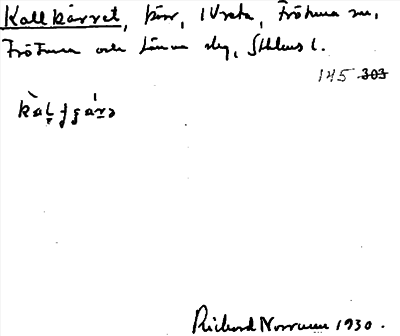 Kallkärret, kärr, i Vreta, Frötuna sn,
Frötuna och Länna skg, Sthlms l.
145 303
Richard Norrman 1930.